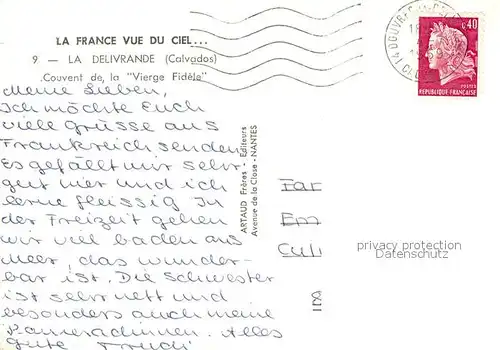 LA FRANCE VUE DU CIEL...
9 — LA DELIVRANDE (Calvados)
Couvent de la "Vierge Fidèle"
Meine Lieben,
Ich möchte Euch
viele grüsse aus
Frankreich senden
Es gefällt mir sehr
gut hier und ich
lerne fleissig In
der Freizeit gehen
wir viel baden ans
Meer, das wunder-
bar ist. Die Schwester
ist sehr nett und
besonders auch meine
Kameradinnen. Alles
gute Trudi
ARTAUD Frères - Editeurs
Avenue de la Close - NANTES
0,40
POSTES
REPUBLIQUE FRANÇAISE
14 DOUVRES
Far
Em
privacy protection
Datenschutz